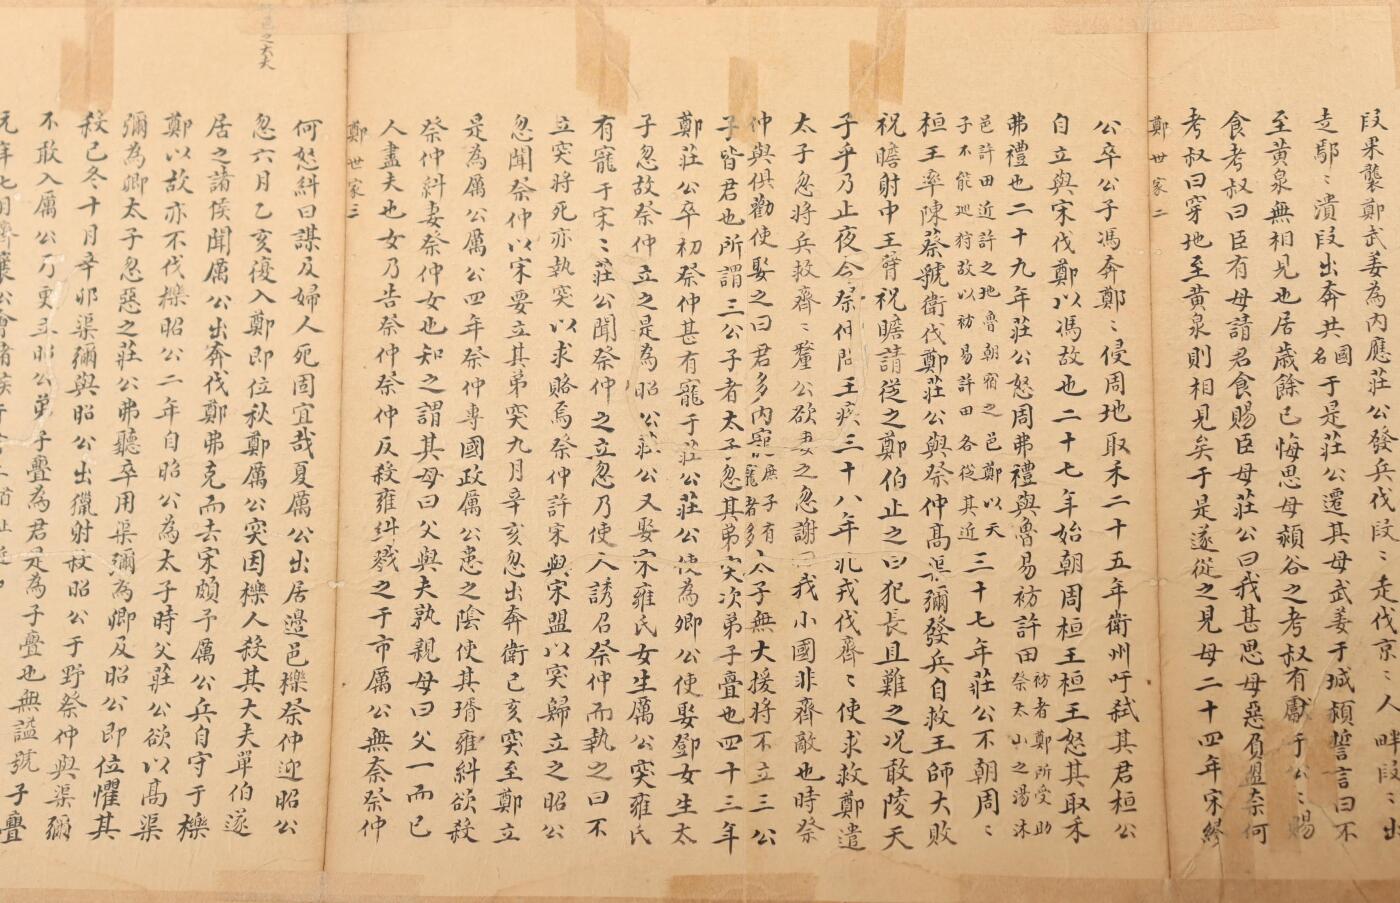 段果襲鄭武姜為內應莊公發兵伐段〻走伐京〻人畔段〻出
走鄢〻潰段出奔共國名于是莊公遷其母武姜于城潁誓言曰不
至黃泉無相見也居歲餘已悔思母潁谷之考叔有獻于公〻賜
食考叔曰臣有母請君食賜臣母莊公曰我甚思母惡負盟奈何
考叔曰穿地至黃泉則相見矣于是遂從之見母二十四年宋繆
鄭世家二
公卒公子馮奔鄭〻侵周地取禾二十五年衛州吁弒其君桓公
自立與宋伐鄭以馮故也二十七年始朝周桓王桓王怒其取禾
弗禮也二十九年莊公怒周弗禮與魯易祊許田祊者鄭所受助祭太山之湯沐
邑許田近許之地魯朝宿之邑鄭以天子不能巡狩故以祊易許田各從其近三十七年莊公不朝周〻
桓王率陳蔡虢衛伐鄭莊公與祭仲高渠彌發兵自救王師大敗
祝瞻射中王臂祝瞻請從之鄭伯止之曰犯長且難之况敢陵天
子乎乃止夜令祭仲問王疾三十八年北戎伐齊〻使求救鄭遣
太子忽將兵救齊〻釐公欲妻之忽謝曰我小國非齊敵也時祭
仲與俱勸使娶之曰君多內寵庶子有寵者多太子無大援將不立三公
子皆君也所謂三公子者太子忽其弟突次弟子亹也四十三年
鄭莊公卒初祭仲甚有寵于莊公莊公使為卿公使娶鄧女生太
子忽故祭仲立之是為昭公莊公又娶宋雍氏女生厲公突雍氏
有寵于宋〻莊公聞祭仲之立忽乃使人誘召祭仲而執之曰不
立突將死亦執突以求賂焉祭仲許宋與宋盟以突歸立之昭公
忽聞祭仲以宋要立其弟突九月辛亥忽出奔衛已亥突至鄭立
是為厲公厲公四年祭仲專國政厲公患之陰使其壻雍糾欲殺
祭仲糾妻祭仲女也知之謂其母曰父與夫孰親母曰父一而已
人盡夫也女乃告祭仲祭仲反殺雍糾戮之于市厲公無奈祭仲
鄭世家三
何怒糾曰謀及婦人死固宜哉夏厲公出居邊邑櫟祭仲迎昭公
忽六月乙亥復入鄭即位秋鄭厲公突因櫟人殺其大夫單伯遂
邑之大夫
居之諸侯聞厲公出奔伐鄭弗克而去宋頗予厲公兵自守于櫟
鄭以故亦不伐櫟昭公二年自昭公為太子時父莊公欲以高渠
彌為卿太子忽惡之莊公弗聽卒用渠彌為卿及昭公即位懼其
殺已冬十月辛卯渠彌與昭公出獵射殺昭公于野祭仲與渠彌
不敢入厲公乃更立昭公弟子亹為君是為子亹也無謚號子亹
元年七月齊襄公會諸侯于